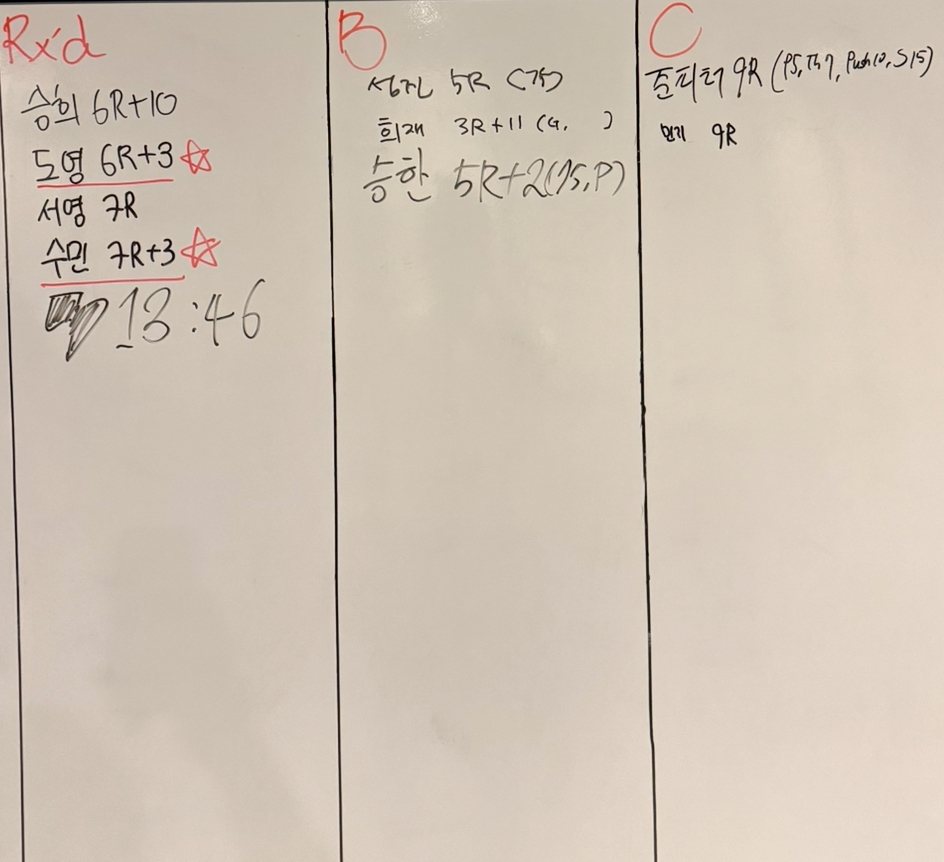 Rx'd
승희 6R+10
도영 6R+3
서영 7R
수민 7R+3
13:46
B
성진 5R (75)
희재 3R+11 (G, )
승한 5R+2(75,P)
C
준피터 9R (P5, Th7, Push10, S15)
민기 9R